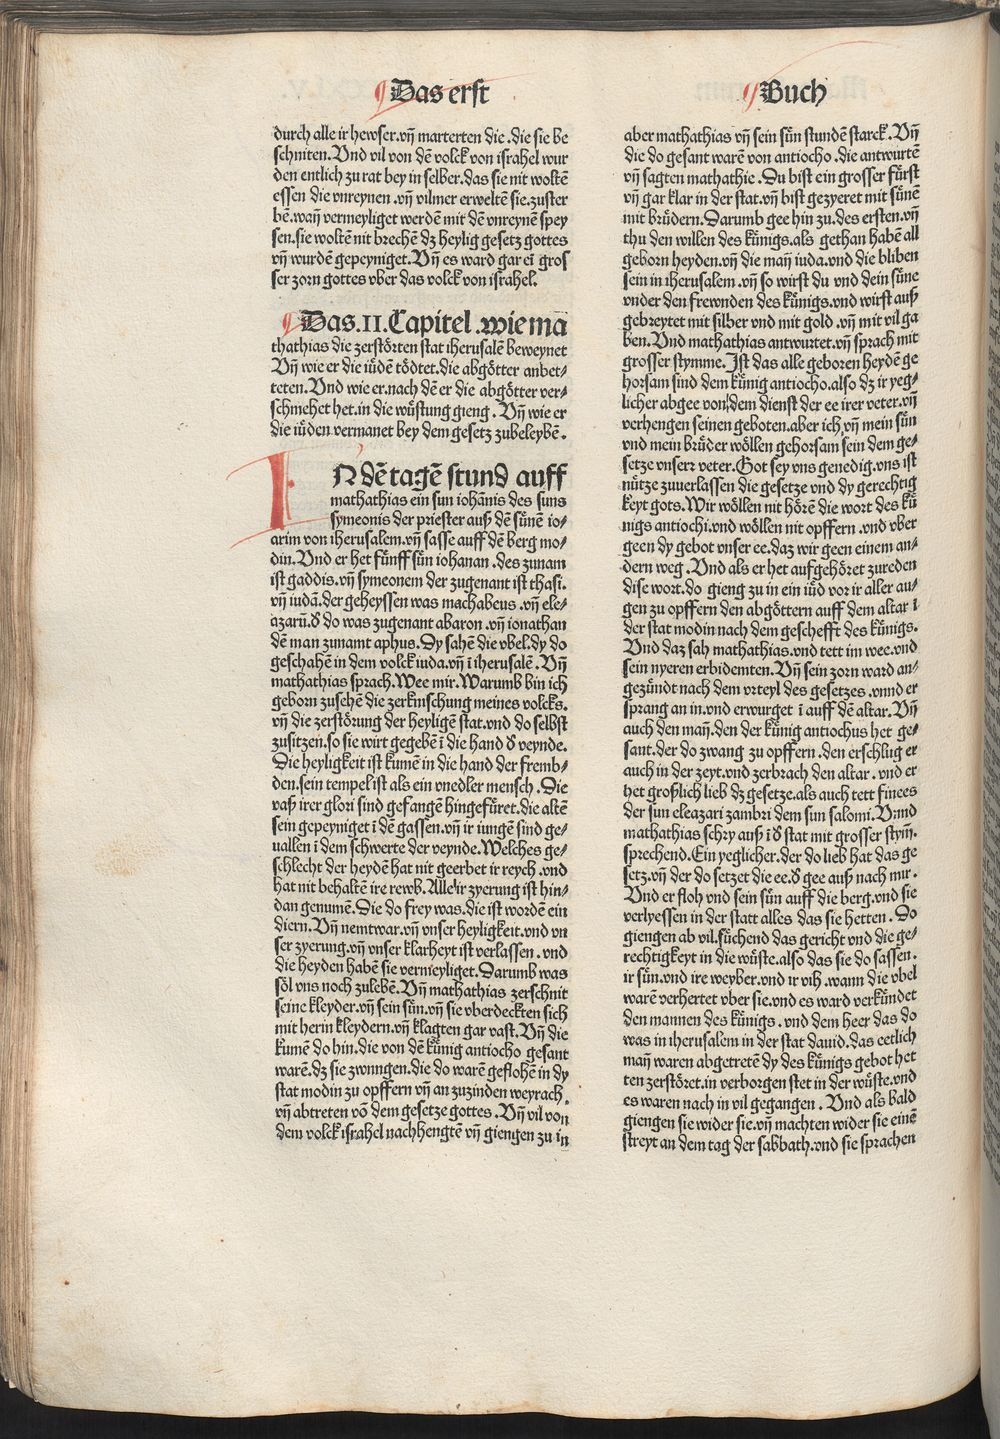 Das erst
durch alle ir hewser.vn̄ marterten die.die sie be
schniten.Vnd vil von dē volck von israhel wur
den entlich zu rat bey in selber.das sie nit woltē
essen die vnreynen.vn̄ vilmer erweltē sie.zuster
bē.wan̄ vermeyliget werdē mit dē vnreynē spey
sen.sie woltē nit brechē dz heylig gesetz gottes
vn̄ wurdē gepeyniget.Vn̄ es ward gar eī gros
ser zorn gottes vber das volck von israhel.
Das.II.Capitel.wie ma
thathias die zerstörten stat iherusalē beweynet
Vn̄ wie er die iūdē tödtet.die abgötter anbet⸗
teten.Vnd wie er.nach dē er die abgötter ver⸗
schmehet het.in die wuͤstung gieng.Vn̄ wie er
die iuͤden vermanet bey dem gesetz zubeleybē.
IN dē tagē stund auff
mathathias ein sun iohānis des suns
symeonis der priester auß dē suͤnē io⸗
arim von iherusalem.vn̄ sasse auff dē berg mo⸗
din.Vnd er het fuͤnff suͤn iohanan.des zunam
ist gaddis.vn̄ symeonem der zugenant ist thasi.
vn̄ iudā.der geheyssen was machabeus.vn̄ ele⸗
azarū.d̕ do was zugenant abaron.vn̄ ionathan
dē man zunamt aphus.Dy sahē die vbel.dy do
geschahē in dem volck iuda.vn̄ ī iherusalē.Vn̄
mathathias sprach.Wee mir.Warumb bin ich
geborn zusehē die zerknischung meines volcks.
vn̄ die zerstörung der heyligē stat.vnd do selbst
zusitzen.so sie wirt gegebē ī die hand d̕ veynde.
Die heyligkeit ist kumē in die hand der fremb⸗
den.sein tempel ist als ein vnedler mensch.Die
vaß irer glori sind gefangē hingefuͤret.die altē
sein gepeyniget ī dē gassen.vn̄ ir iungē sind ge⸗
uallen ī dem schwerte der veynde.Welches ge⸗
schlecht der heydē hat nit geerbet ir reych.vnd
hat nit behaltē ire rewb.Alle ir zyerung ist hin⸗
dan genumē.Die do frey was.die ist wordē ein
diern.Vn̄ nemtwar.vn̄ vnser heyligkeit.vnd vn
ser zyerung.vn̄ vnser klarheyt ist verlassen.vnd
die heyden habē sie vermeyliget.Darumb was
söl vns noch zulebē.Vn̄ mathathias zerschnit
seine kleyder.vn̄ sein suͤn.vn̄ sie vberdeckten sich
mit herin kleydern.vn̄ klagten gar vast.Vn̄ die
kumē do hin.die von dē kuͤnig antiocho gesant
warē.dz sie zwungen.die do warē geflohē in dy
stat modin zu opffern vn̄ an zuzinden weyrach.
vn̄ abtreten vō dem gesetze gottes.Vn̄ vil von
dem volck israhel nachhengtē vn̄ giengen zu in
Buch
aber mathathias vn̄ sein suͤn stundē starck.Vn̄
die do gesant warē von antiocho.die antwurtē
vn̄ sagten mathathie.Du bist ein grosser fuͤrst
vn̄ gar klar in der stat.vn̄ bist gezyeret mit suͤnē
mit bruͤdern.Darumb gee hin zu.des ersten.vn̄
thu den willen des kuͤnigs.als gethan habē all
geborn heyden.vn̄ die man̄ iuda.vnd die bliben
sein in iherusalem.vn̄ so wirst du vnd dein suͤne
vnder den frewnden des kuͤnigs.vnd wirst auß
gebreytet mit silber vnd mit gold.vn̄ mit vil ga
ben.Vnd mathathias antwurtet.vn̄ sprach mit
grosser stymme.Ist das alle geboren heydē ge
horsam sind dem kuͤnig antiocho.also dz ir yeg⸗
licher abgee von dem dienst der ee irer veter.vn̄
verhengen seinen geboten.aber ich vn̄ mein suͤn
vnd mein bruͤder wöllen gehorsam sein dem ge⸗
setze vnserr veter.Got sey vns genedig.vns ist
nuͤtze zuuerlassen die gesetze vnd dy gerechtig
keyt gots.Wir wöllen nit hörē die wort des kuͤ
nigs antiochi.vnd wöllen nit opffern.vnd vber
geen dy gebot vnser ee.daz wir geen einem an⸗
dern weg.Vnd als er het aufgehöret zureden
dise wort.do gieng zu in ein iuͤd vor ir aller au⸗
gen zu opffern den abgöttern auff dem altar ī
der stat modin nach dem geschefft des kuͤnigs.
Vnd daz sah mathathias.vnd tett im wee.vnd
sein nyeren erbidemten.Vn̄ sein zorn ward an⸗
gezuͤndt nach dem vrteyl des gesetzes.vnnd er
sprang an in.vnd erwurget ī auff dē altar.Vn̄
auch den man̄.den der kuͤnig antiochus het ge⸗
sant.der do zwang zu opffern.den erschlug er
auch in der zeyt.vnd zerbrach den altar.vnd er
het großlich lieb dz gesetze.als auch tett finees
der sun eleazari zambri dem sun salomi.Vnnd
mathathias schry auß ī d̕ stat mit grosser stym̄.
sprechend.Ein yeglicher.der do lieb hat das ge
setz.vn̄ der do setzet die ee.d̕ gee auß nach mir.
Vnd er floh vnd sein suͤn auff die berg.vnd sie
verlyessen in der statt alles das sie hetten.Do
giengen ab vil.suͤchend das gericht vnd die ge⸗
rechtigkeyt in die wuͤste.also das sie do sassen.
ir suͤn.vnd ire weyber.vnd ir vih.wann die vbel
warē verhertet vber sie.vnd es ward verkuͤndet
den mannen des kuͤnigs.vnd dem heer das do
was in iherusalem in der stat dauid.das eetlich
man̄ waren abgetretē dy des kuͤnigs gebot het
ten zerstöret.in verborgen stet in der wuͤste.vnd
es waren nach in vil gegangen.Vnd als bald
giengen sie wider sie.vn̄ machten wider sie einē
streyt an dem tag der sabbath.vnd sie sprachen